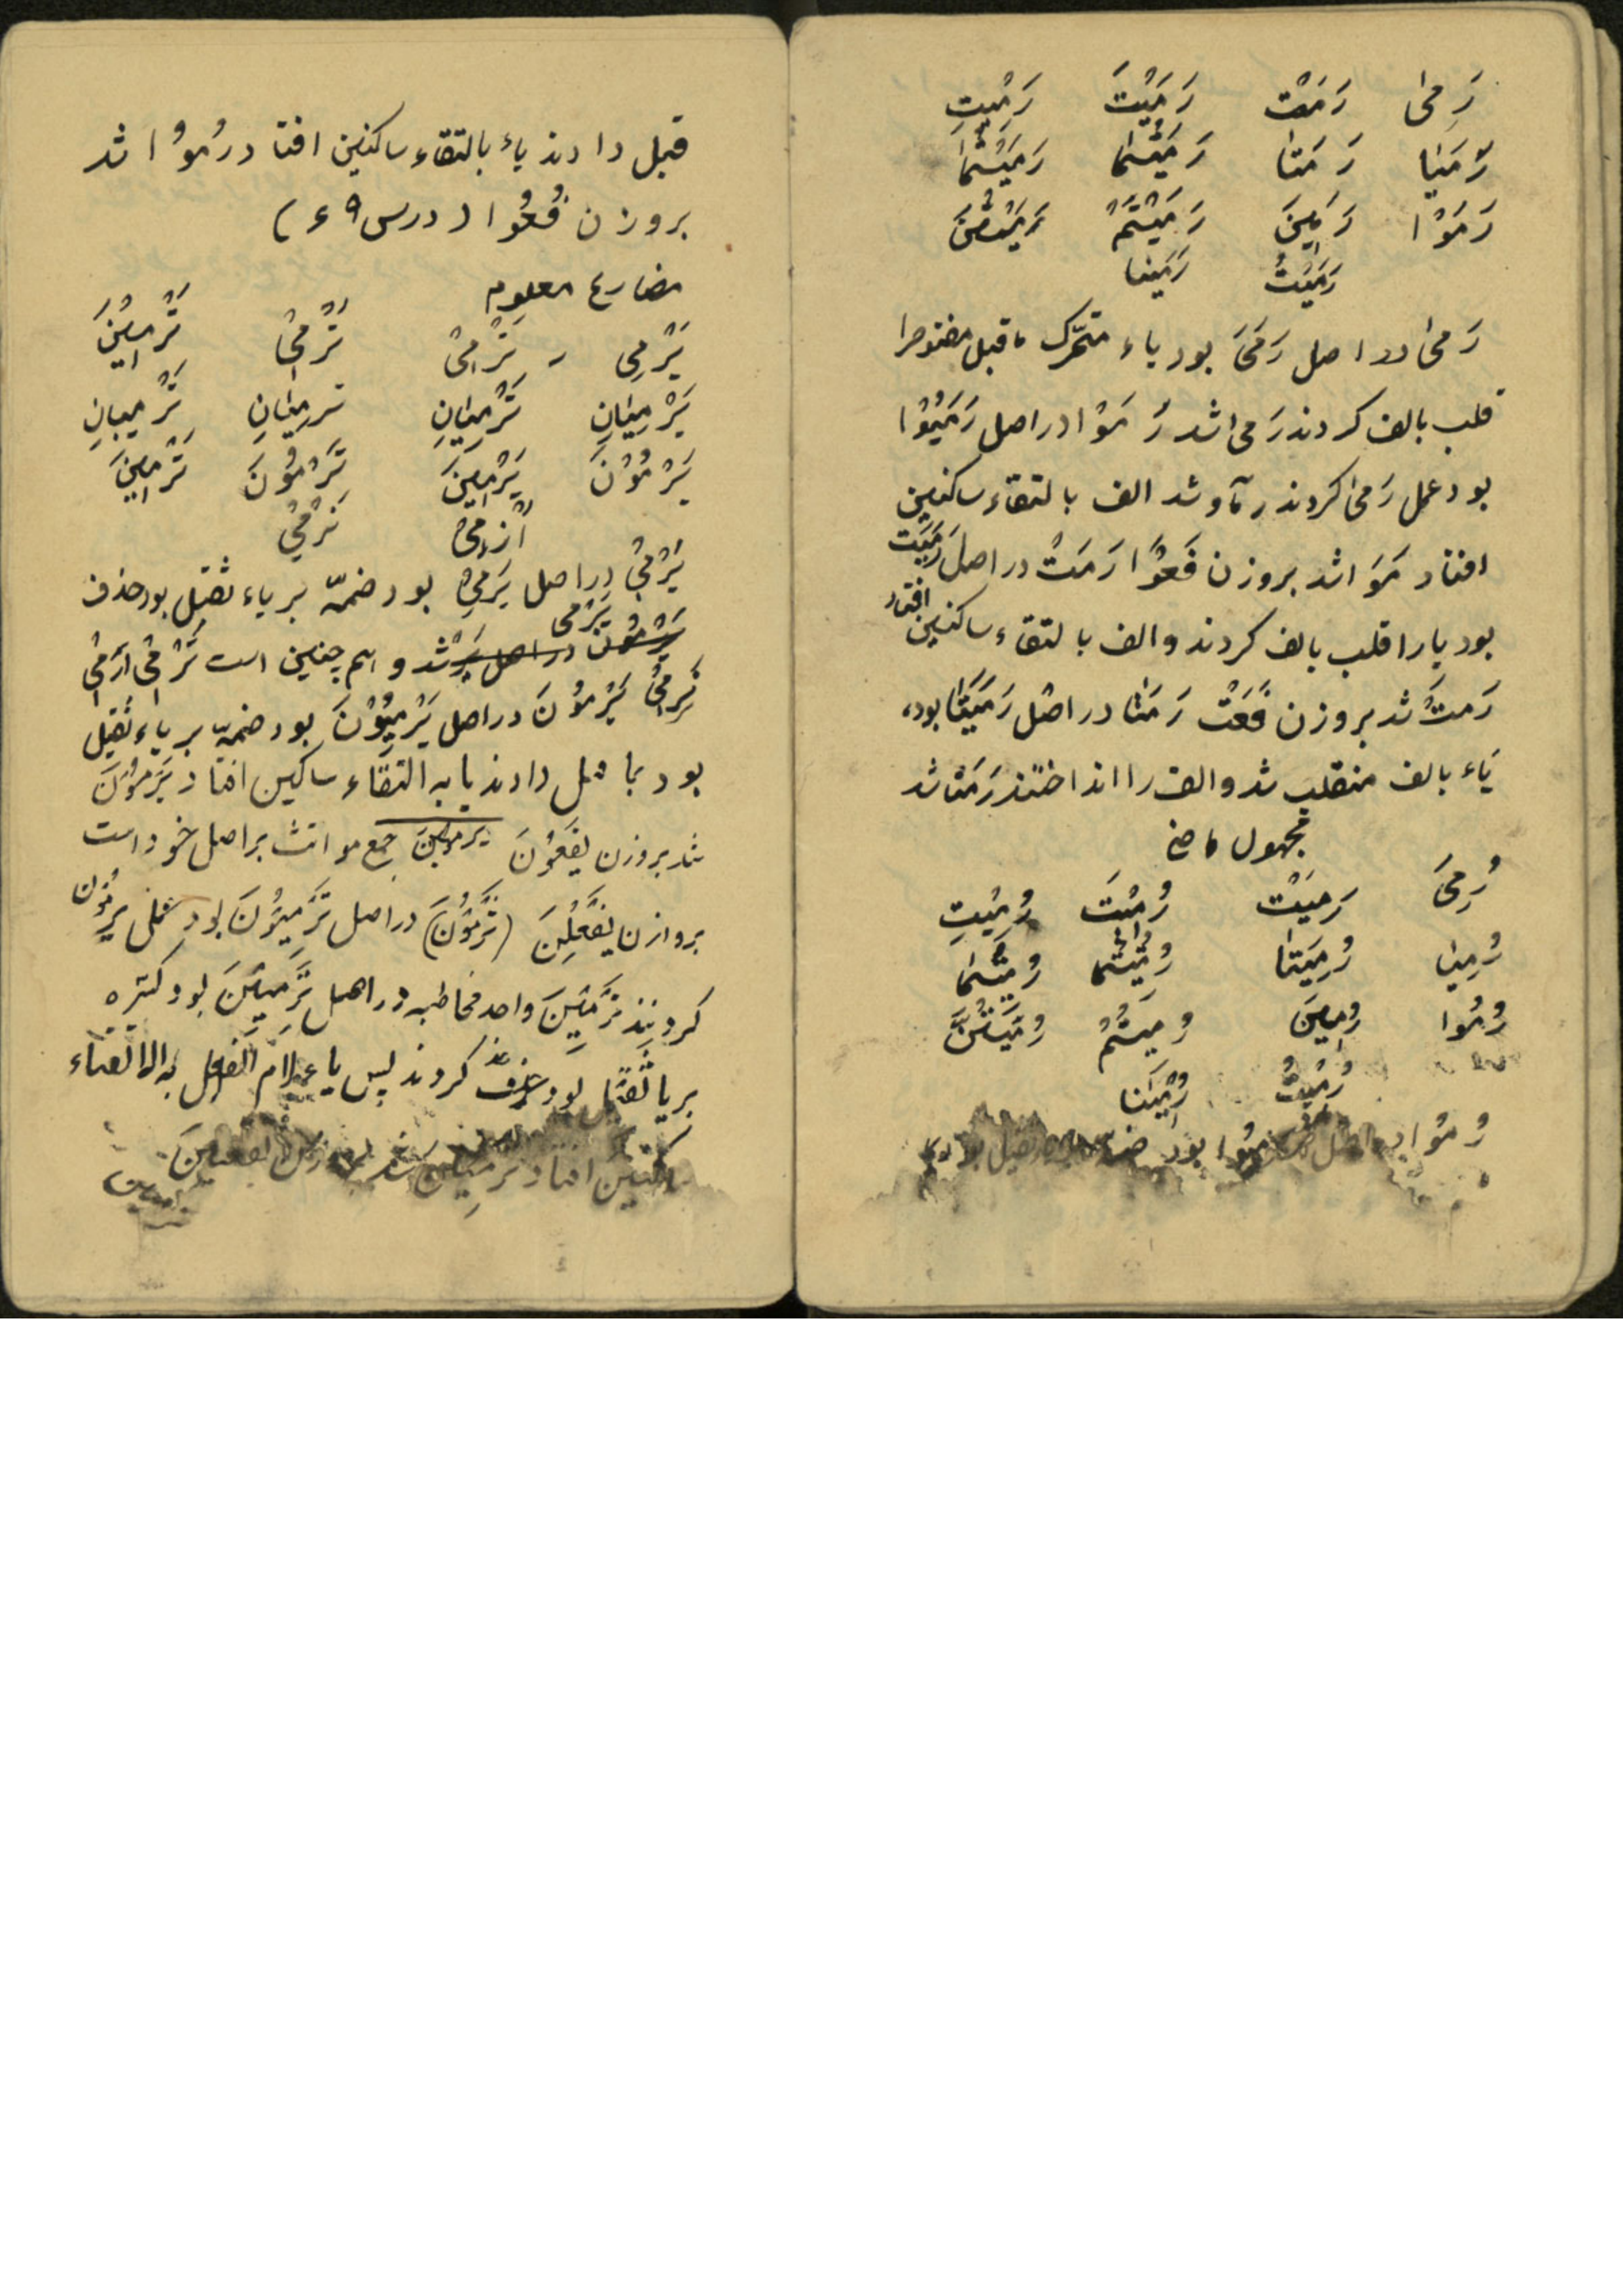 رَمىٰ رَمَتْ رَمَيْتَ رَمَيْتِ
رَمَيٰا رَمَتٰا رَمَيْتُمٰا رَمَيْتُمٰا
رَمَوْا رَمَيْنَ رَمَيْتُمْ رَمَيْتُنَّ
رَمَيْتُ رَمَيْنا
رَمىٰ در اصل رَمَىَ بود ياء متحّرک ماقبل مفتوحرا
قلب بالف کردند رَمى شد رَمَوْا در اصل رَمَيُوْا
بود عمل رَمىٰ کردند رماو شد الف بالتقاء ساکنين
افتاد رَمَوَا شد بروزن فَعَوْا رَمَتْ در اصل رَمَيَت
بود يا را قلب بالف کردند و الف بالتقاء ساکنين افتاد
رَمتْ شد بروزن فَعَتْ رَمَتٰا در اصل رَمَيَتٰا بود،
يَاء بالف منقلب شد و الف را انداختند رَمَتٰا شد
مجهول ماضى
رُمِىَ رُمِيَتْ رُمِيْتَ رُمِيْتِ
رُمِيٰا رُمِيَتٰا رُمِيْتُمٰا رُمِيْتُمٰا
رُمُوا رُمِينَ رُمِيتُمْ رُمِيتُنَّ
رُمِيْتُ رُمِيْنا
رُمُوا در اصل بود
قبل دادند ياء بالتقاء ساکنين افتاد رُمُوْا شد
بروزن فُعُوا (درس ۹ ء)
مضارع معلوم
يَرْمِى - تَرْمِىْ تَرْمِىْ تَرْمِيْنَ
يَرْمِيٰانِ تَرْمِيٰانِ ترمِيٰانِ تَرْمِيانِ
يَرْمُوْنَ يَرْمِينَ تَرْمُوْنَ تَرْمِينَ
اَرْمِىْ نَرْمِىْ
يَرْمِىْ در اصل يَرمِىُ بود ضمّه بر ياء ثقيل بود حذف
يَرْمى شد و اسم چنين است تَرْمِىْ اَرْمِىْ
نَرمِىْ يَرْمُوْنَ در اصل يَرْمِيُوْنَ بود ضمهّ بر ياء ثقيل
بود بما قبل دادند يا به التقاء ساکين افتاد يَرْمُوْنَ
شد بروزن يَفْعُوْنَ يرمينَ جمع مونث بر اصل خود است
بروازن يَفْعِلْنَ (تَرْمُوْنَ) در اصل تَرْمِيُوْنَ بود مثل يرمُون
کردنيد تَرْمَيْنَ واحد مخاطبه در اصل تَرْمِيِيْنَ بود کثره
بر يا ثقيا بود حذف کردند پس يا لام الفعل به التقاء
ساکنين افتاد ترمِين شد بروزن تفعينَ